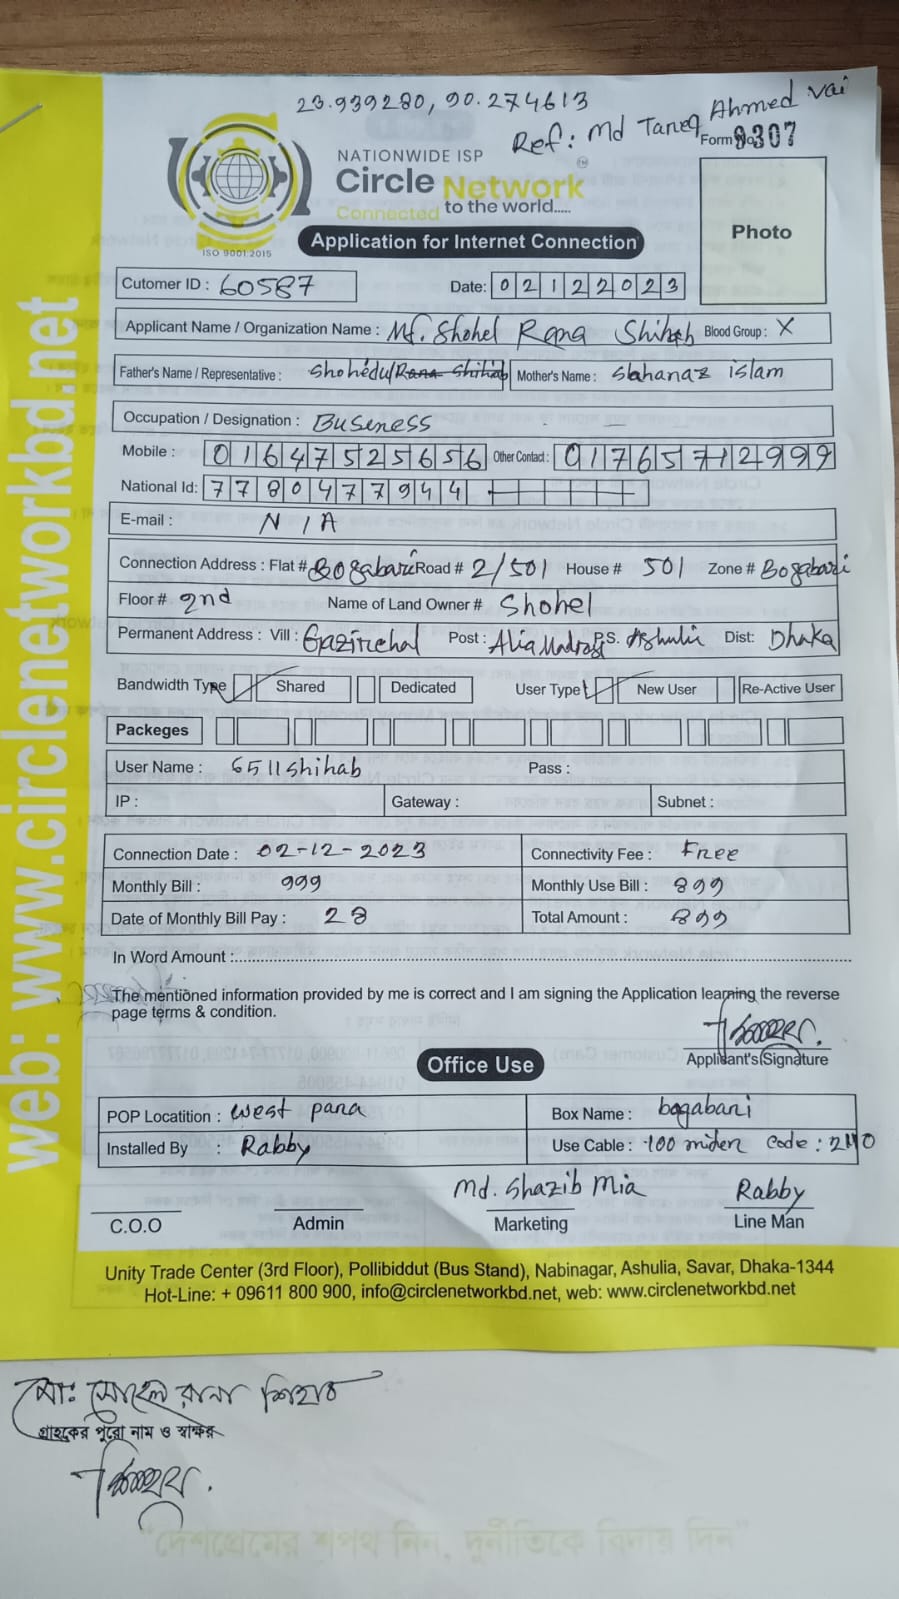 23.939280, 90.274613
Ref: Md Tareq Ahmed vai
Form No 9307
NATIONWIDE ISP
Circle Network
Connected to the world.....
ISO 9001:2015
Application for Internet Connection
Photo
Cutomer ID : 60587 Date: 02122023
Applicant Name / Organization Name : Md. Shohel Rana Shihab Blood Group : X
Father's Name / Representative : Shohidul Rana Shihab Mother's Name : Shahanaz islam
Occupation / Designation : Business
Mobile : 01647525656 Other Contact : 01765712999
National Id: 7780477944
E-mail : N/A
Connection Address : Flat # Bogabari Road # 2/501 House # 501 Zone # Bogabari
Floor # 2nd Name of Land Owner # Shohel
Permanent Address : Vill : Gazirchat Post : Alia Madrasa P.S. Ashulia Dist: Dhaka
Bandwidth Type Shared Dedicated User Type New User Re-Active User
Packeges
User Name : 6511shihab Pass :
IP : Gateway : Subnet :
Connection Date : 02-12-2023 Connectivity Fee : Free
Monthly Bill : 999 Monthly Use Bill : 899
Date of Monthly Bill Pay : 28 Total Amount : 899
In Word Amount :
The mentioned information provided by me is correct and I am signing the Application learning the reverse
page terms & condition.
Applicant's Signature
Office Use
POP Locatition : west para Box Name : bogabari
Installed By : Rabby Use Cable : 100 Code : 240
Md. Shazib Mia Rabby
C.O.O Admin Marketing Line Man
Unity Trade Center (3rd Floor), Pollibiddut (Bus Stand), Nabinagar, Ashulia, Savar, Dhaka-1344
Hot-Line: + 09611 800 900, info@circlenetworkbd.net, web: www.circlenetworkbd.net
web: www.circlenetworkbd.net
মো: সোহেল রানা শিহাব
গ্রাহকের পুরো নাম ও স্বাক্ষর
"দেশপ্রেমের শপথ নিন, দুর্নীতিকে বিদায় দিন"